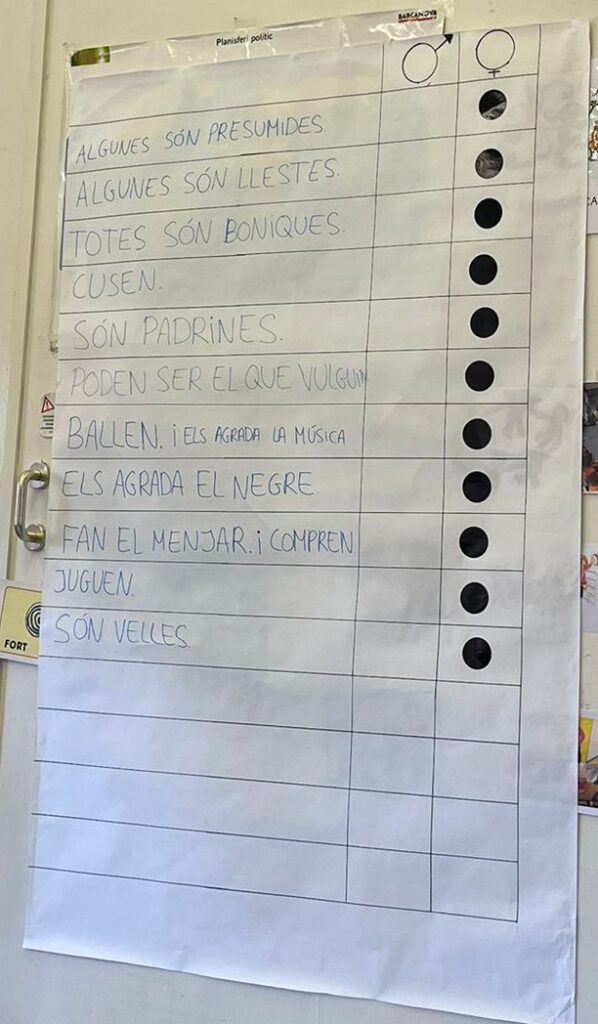 BARCANOVA
Planisferi polític
♂ ♀
ALGUNES SÓN PRESUMIDES.
ALGUNES SÓN LLESTES.
TOTES SÓN BONIQUES.
CUSEN.
SÓN PADRINES.
PODEN SER EL QUE VULGUIN
BALLEN. i ELS AGRADA LA MÚSICA
ELS AGRADA EL NEGRE
FAN EL MENJAR. i COMPREN
JUGUEN.
SÓN VELLES.
FORT